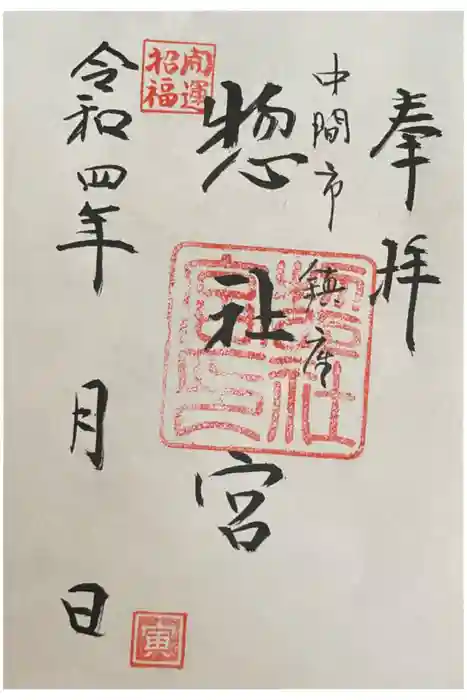 奉拝
中間市 鎮座
惣社宮
開運
招福
令和四年 月 日
寅